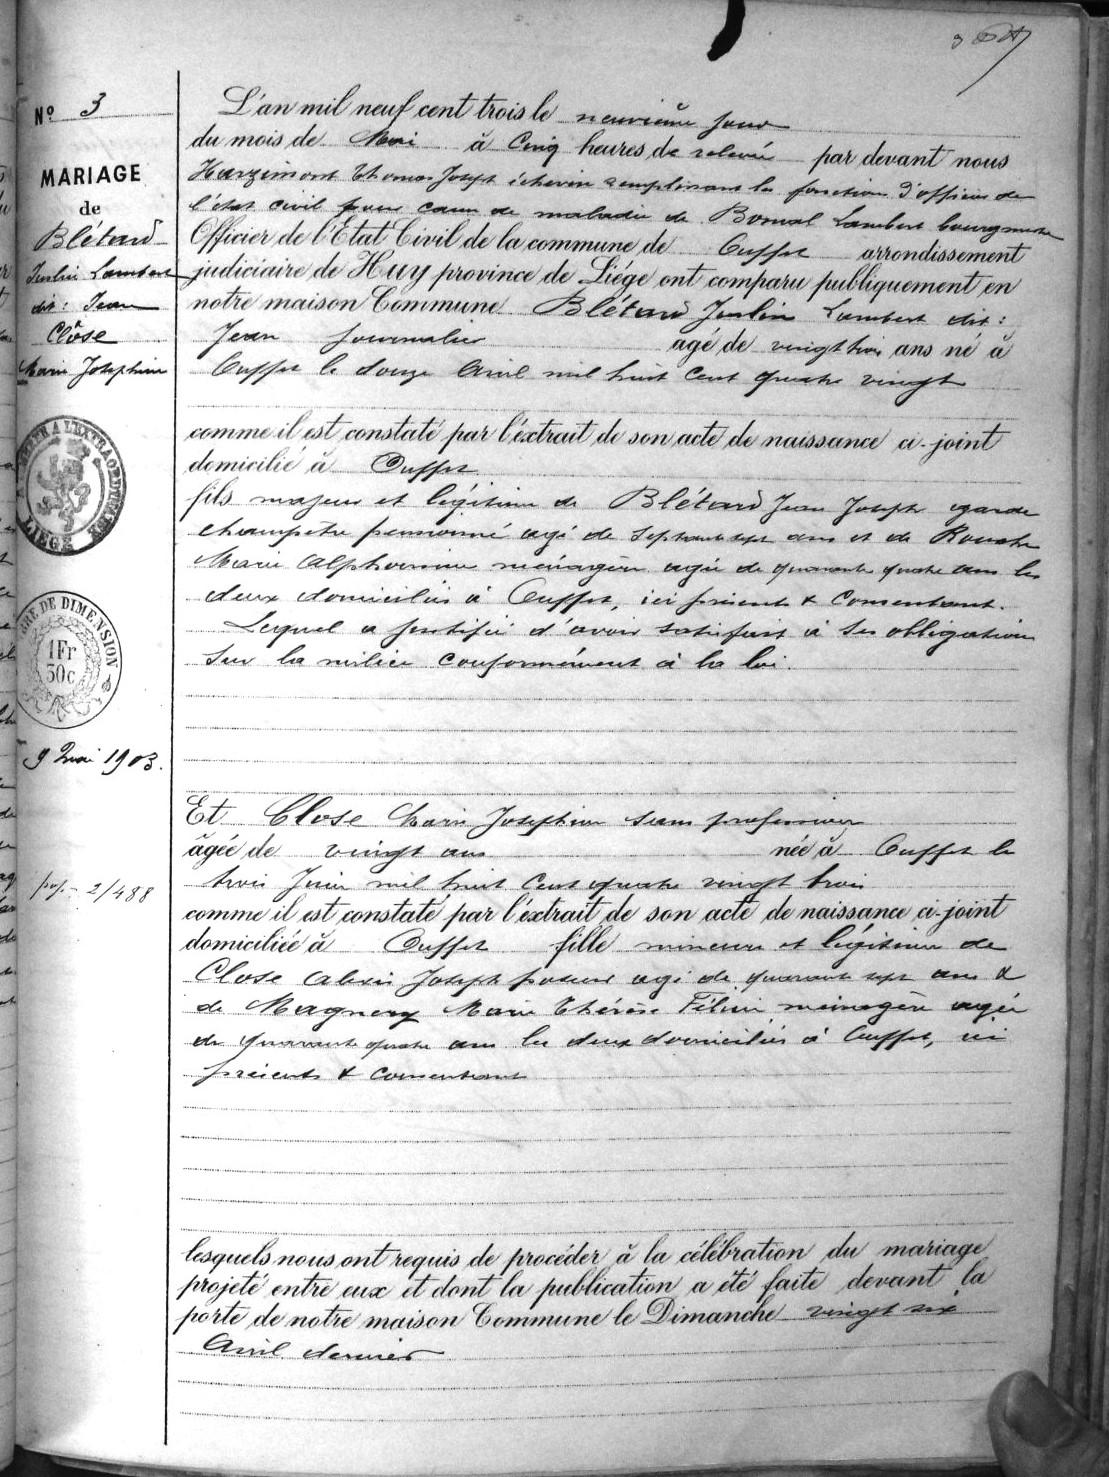 Nº 3
MARIAGE
de
Blétard
Juslin Lambert
dit : Jean
Clôse
Marie Joséphine
TIMBRE A L'EXTRAORDINAIRE
LIEGE
TIMBRE DE DIMENSION
1Fr
50c
9 Mai 1903.
2/488
L'an mil neuf cent trois le neuvième jour
du mois de Mai à Cinq heures de relevée par devant nous
Harzimont Thomas Joseph échevin remplissant les fonctions d'officier de
l'état civil pour cause de maladie de Bomal Lambert bourgmestre
Officier de l'État Civil de la commune de Ouffet arrondissement
judiciaire de Huy province de Liége ont comparu publiquement en
notre maison Commune Blétard Juslin Lambert dit :
Jean journalier agé de vingt trois ans né à
Ouffet le douze Avril mil huit cent quatre vingt
comme il est constaté par l'éxtrait de son acte de naissance ci-joint
domicilié à Ouffet
fils majeur et légitime de Blétard Jean Joseph garde
champetre pensionné agé de septante sept ans et de
Marie Alphonsine ménagère agée de quarante quatre ans les
deux domiciliés à Ouffet, ici présents & consentant.
Lequel a justifié d'avoir satisfait à ses obligations
sur la milice conformément à la loi.
Et Close Marie Joséphine sans profession
âgée de vingt ans née à Ouffet le
trois Juin mil huit cent quatre vingt trois
comme il est constaté par l'éxtrait de son acte de naissance ci-joint
domiciliée à Ouffet fille mineure et légitime de
Close Alexis Joseph agé de quarante sept ans &
de Magnery Marie Thérèse ménagère agée
de quarante quatre ans les deux domiciliés à Ouffet, ici
présents & consentant
lesquels nous ont requis de procéder à la célébration du mariage
projeté entre eux et dont la publication a été faite devant la
porte de notre maison Commune le Dimanche vingt six
Avril dernier